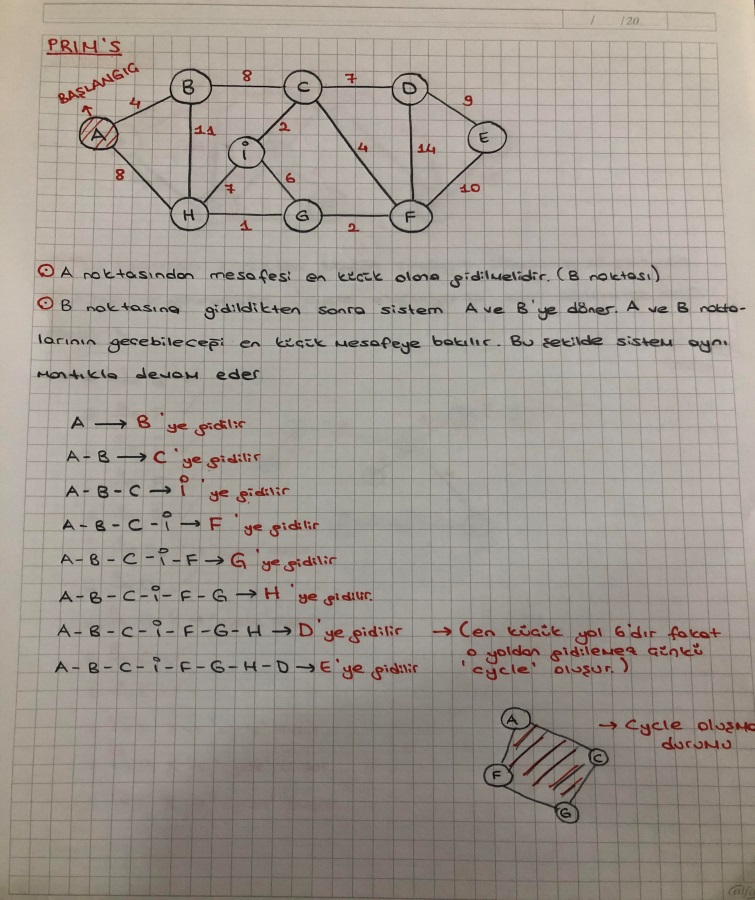 / /20
PRIM'S
BAŞLANGIÇ
A
B
C
D
E
F
G
H
İ
4
8
7
9
11
2
4
14
8
7
6
10
1
2
A noktasından mesafesi en küçük olana gidilmelidir. (B noktası)
B noktasına gidildikten sonra sistem A ve B'ye döner. A ve B nokta-
larının geçebileceği en küçük mesafeye bakılır. Bu şekilde sistem aynı
mantıkla devam eder
A → B 'ye gidilir
A - B → C 'ye gidilir
A - B - C → İ 'ye gidilir
A - B - C - İ → F 'ye gidilir
A - B - C - İ - F → G 'ye gidilir
A - B - C - İ - F - G → H 'ye gidilir.
A - B - C - İ - F - G - H → D'ye gidilir → (en küçük yol 6'dır fakat
o yoldan gidilemez çünkü
A - B - C - İ - F - G - H - D → E'ye gidilir 'cycle' oluşur.)
A
C
F
G
→ Cycle oluşma
durumu